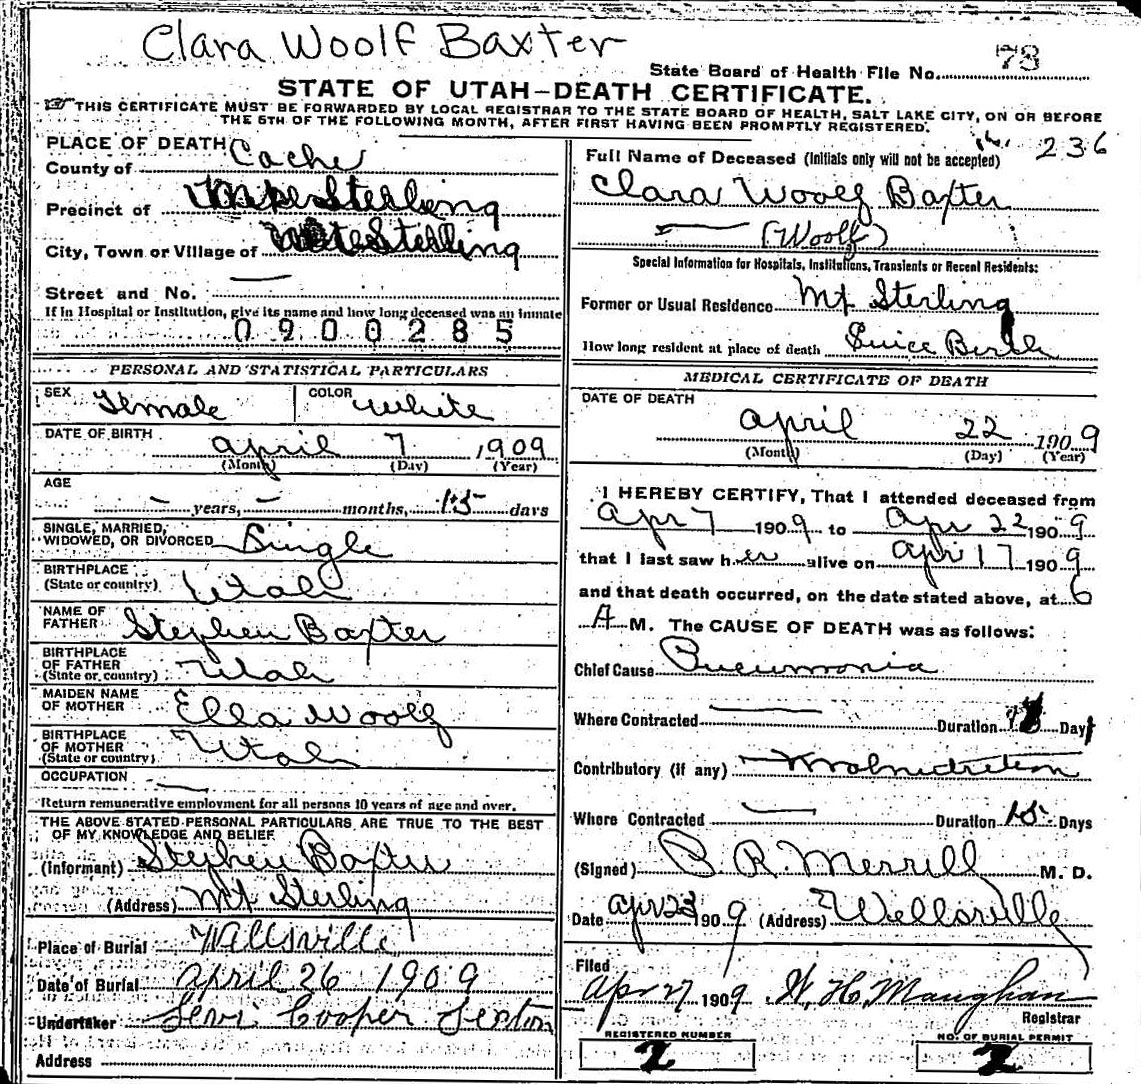 Clara Woolf Baxter
State Board of Health File No. 73
STATE OF UTAH—DEATH CERTIFICATE.
THIS CERTIFICATE MUST BE FORWARDED BY LOCAL REGISTRAR TO THE STATE BOARD OF HEALTH, SALT LAKE CITY, ON OR BEFORE
THE 5TH OF THE FOLLOWING MONTH, AFTER FIRST HAVING BEEN PROMPTLY REGISTERED.
236
PLACE OF DEATH
County of Cache
Precinct of Sterling
City, Town or Village of Sterling
Street and No. —
If in Hospital or Institution, give its name and how long deceased was an inmate
0900285
Full Name of Deceased (Initials only will not be accepted)
Clara Woolf Baxter
— (Woolf)
Special Information for Hospitals, Institutions, Transients or Recent Residents:
Former or Usual Residence Mt Sterling
How long resident at place of death Since Birth
PERSONAL AND STATISTICAL PARTICULARS
SEX Female COLOR White
DATE OF BIRTH April 7 1909
(Month) (Day) (Year)
AGE
— years, — months, 15 days
SINGLE, MARRIED,
WIDOWED, OR DIVORCED Single
BIRTHPLACE
(State or country) Utah
NAME OF
FATHER Stephen Baxter
BIRTHPLACE
OF FATHER
(State or country) Utah
MAIDEN NAME
OF MOTHER Ella Woolf
BIRTHPLACE
OF MOTHER
(State or country) Utah
OCCUPATION —
Return remunerative employment for all persons 10 years of age and over.
THE ABOVE STATED PERSONAL PARTICULARS ARE TRUE TO THE BEST
OF MY KNOWLEDGE AND BELIEF
(Informant) Stephen Baxter
(Address) Mt Sterling
Place of Burial Wellsville
Date of Burial April 26 1909
Undertaker Levi Cooper Sexton
Address
MEDICAL CERTIFICATE OF DEATH
DATE OF DEATH
April 22 1909
(Month) (Day) (Year)
I HEREBY CERTIFY, That I attended deceased from
Apr 7 1909 to Apr 22 1909
that I last saw her alive on Apr 17 1909
and that death occurred, on the date stated above, at 6
A M. The CAUSE OF DEATH was as follows:
Chief Cause Pneumonia
Where Contracted — Duration Days
Contributory (if any) Malnutrition
Where Contracted — Duration 15 Days
(Signed) B. R. Merrill M. D.
Date Apr 23 1909 (Address) Wellsville
Filed
Apr 27 1909 W. H. Maughan
Registrar
REGISTERED NUMBER
2
NO. OF BURIAL PERMIT
2